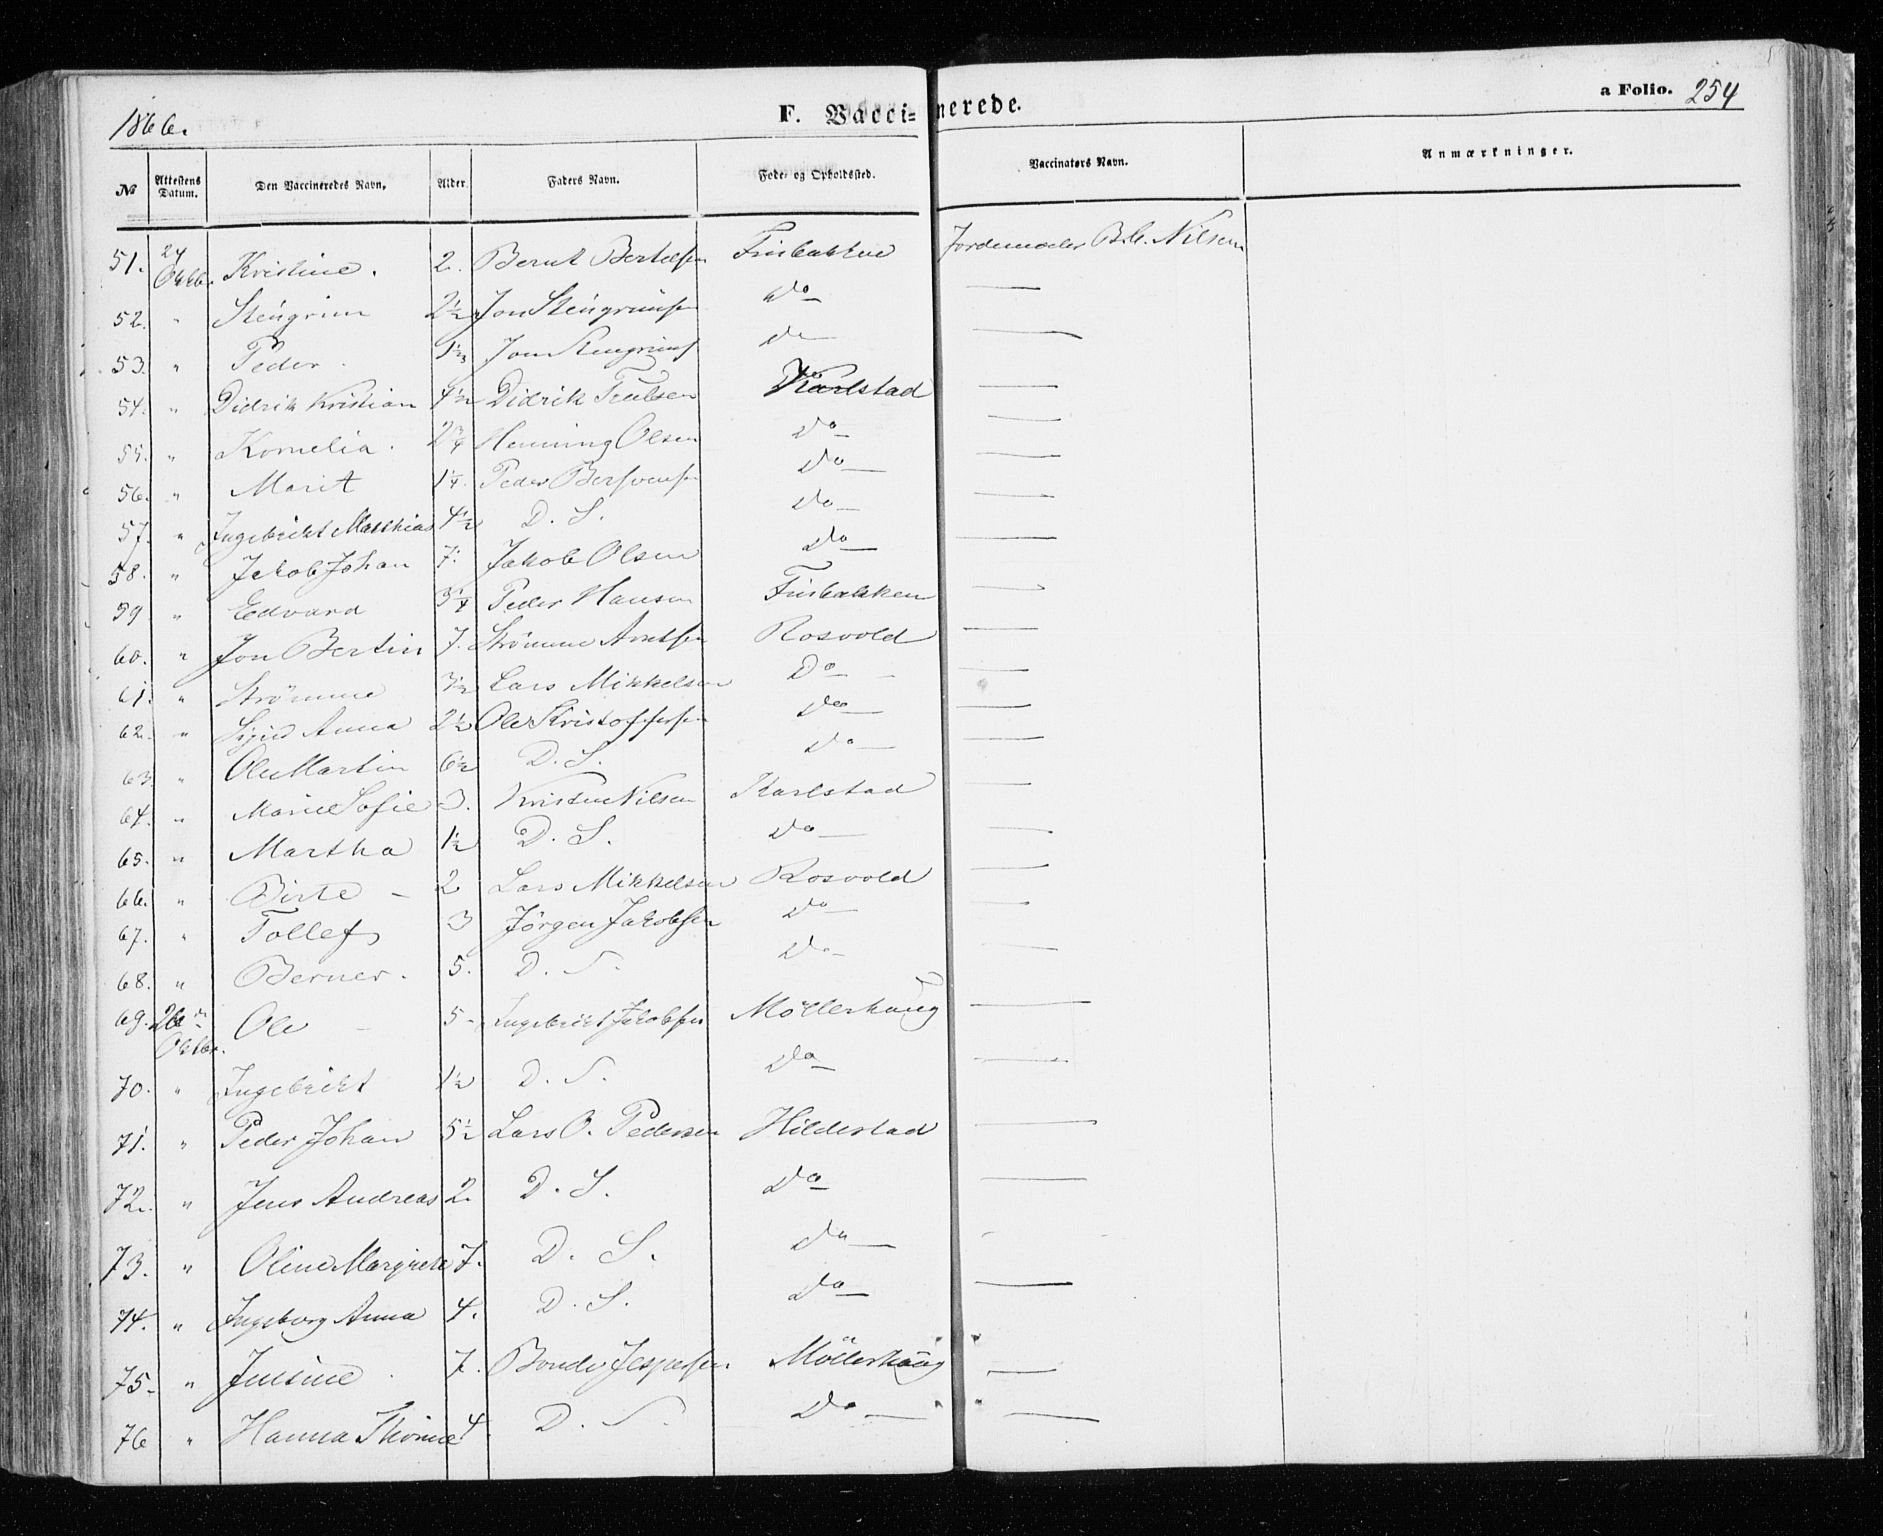 1866.
F. Vacci- nerede.
a Folio. 254
No Attestens Datum. Den Vaccineredes Navn. Alder. Faders Navn. Føde- og Opholdssted. Vaccinators Navn. Anmærkninger.
51. 24 Oktbr. Kristine. 2. Bernt Bertelsen Finbakken Jordemoder B. Nilsen
52. " Stengrim 2½ Jon Stengrimsen Do —
53. " Peder. Jon Stengrims Do —
54. " Didrik Kristian 4½ Didrik Trulsen Karlstad —
55. " Kornelia. 2¾ Henning Olsen Do —
56. " Marit 1¼ Peder Bersvensen Do —
57. " Ingebrikt Matthias 4½ D. S. Do —
58. " Jakob Johan 7. Jakob Olsen Do —
59 " Edvard 3¼ Peder Hansen Finbakken —
60. " Jon Bertin 7. Strømme Arntsen Rosvold —
61. " Strømme 3½ Lars Mikkelsen Do —
62. " Sigrid Anna 2½ Ole Kristoffersen Do —
63. " Ole Martin 6½ D. S. Do —
64. " Marie Sofie 3. Kristen Nilsen Karlstad —
65. " Martha 1½ D. S. Do —
66. " Birte 2 Lars Mikkelsen Rosvold —
67. " Tollef 3 Jørgen Jakobsen Do —
68. " Berner. 5. D. S. Do —
69. 26de Oktbr. Ole 5 Ingebrikt Jakobsen Möllerhaug —
70. " Ingebrikt 1½ D. S. Do —
71. " Peder Johan 5½ Lars O. Pedersen Hildestad —
72. " Jens Andreas 2. D. S. Do —
73. " Oline Margrete 7. D. S. Do —
74. " Ingeborg Anna 4. D. S. Do —
75. " Jensine 7. Bonde Jespersen Möllerhaug —
76 " Hanna 4 D. S. Do —